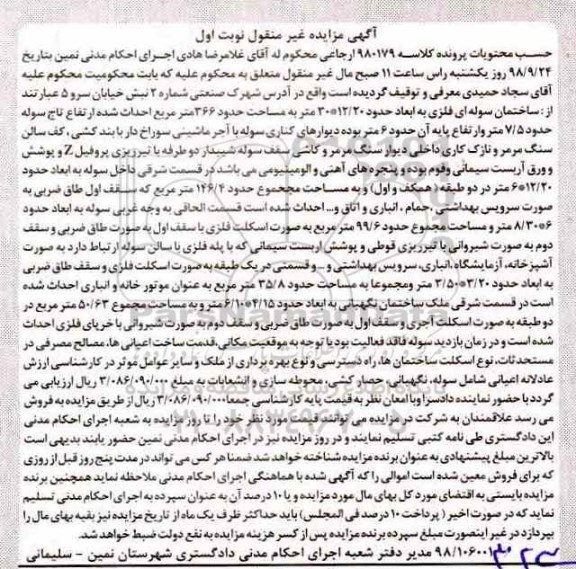 آگهی مزایده غیر منقول نوبت اول
حسب محتویات پرونده کلاسه ۹۸۰۱۷۹ ارجاعی محکوم له آقای غلامرضا هادی اجرای احکام مدنی نمین بتاریخ
۹۸/۹/۲۴ روز یکشنبه راس ساعت ۱۱ صبح مال غیر منقول متعلق به محکوم علیه که بابت محکومیت محکوم علیه
آقای سجاد حمیدی معرفی و توقیف گردیده است واقع در آدرس شهرک صنعتی شماره ۲ نبش خیابان سرو ۵ عبارتند
از : ساختمان سوله ای فلزی به ابعاد حدود ۱۲/۲۰*۳۰ متر به مساحت حدود ۳۶۶ متر مربع احداث شده ارتفاع تاج سوله
حدود ۷/۵ متر وارتفاع پایه آن حدود ۶ متر بوده دیوارهای کناری سوله با آجر ماشینی سوراخ دار با بند کشی ، کف سالن
سنگ مرمر و نازک کاری داخلی دیوار سنگ مرمر و کاشی سقف سوله شیبدار دو طرفه با تیرریزی پروفیل Z و پوشش
و ورق آربست سیمانی وفوم بوده و پنجره های آهنی و الومینیومی می باشد در قسمت شرقی داخل سوله به ابعاد حدود
۱۲/۲۰*۶ متر در دو طبقه ( همکف و اول) و به مساحت مجموع حدود ۱۴۶/۴ متر مربع که سقف اول طاق ضربی به
صورت سرویس بهداشتی ،حمام ، انباری و اتاق و... احداث شده است قسمت الحاقی به وجه غربی سوله به ابعاد حدود
۶*۸/۳۰ متر و مساحت مجموع حدود ۹۹/۶ متر مربع به صورت اسکلت فلزی با سقف اول به صورت طاق ضربی و سقف
دوم به صورت شیروانی با تیرریزی قوطی و پوشش اربست سیمانی که با پله فلزی با سالن سوله ارتباط دارد به صورت
آشپزخانه، آزمایشگاه،انباری، سرویس بهداشتی و ... و قسمتی در یک طبقه به صورت اسکلت فلزی و سقف طاق ضربی
به ابعاد حدود ۳/۲۰*۳/۵۰ متر ومجموعا به مساحت حدود ۳۵/۸ متر مربع به عنوان موتور خانه و انباری احداث شده
است در قسمت شرقی ملک ساختمان نگهبانی به ابعاد حدود ۴/۱۵*۶/۱۰ متر و به مساحت مجموع ۵۰/۶۳ متر مربع در
دو طبقه به صورت اسکلت آجری و سقف اول به صورت طاق ضربی و سقف دوم به صورت شیروانی با خرپای فلزی احداث
شده است و در زمان بازدید سوله فاقد فعالیت بود با توجه به موقعیت مکانی،قدمت ساخت اعیانی ها،مصالح مصرفی در
مستحدثات، نوع اسکلت ساختمان ها، راه دسترسی و نوع بهره برداری از ملک و سایر عوامل موثر در کارشناسی ارزش
عادلانه اعیانی شامل سوله، نگهبانی، حصار کشی، محوطه سازی و انشعابات به مبلغ ۳/۰۸۶/۰۹۰/۰۰۰ ریال ارزیابی می
گردد با حضور نماینده دادسرا وبا امعان نظر به قیمت پایه کارشناسی جمعا ۳/۰۸۶/۰۹۰/۰۰۰ ریال از طریق مزایده به فروش
می رسد علاقمندان به شرکت در مزایده می توانند قیمت مورد نظر خود را تا روز مزایده به شعبه اجرای احکام مدنی
این دادگستری طی نامه کتبی تسلیم نمایند و در روز مزایده نیز در اجرای احکام مدنی نمین حضور یابند بدیهی است
بالاترین مبلغ پیشنهادی به عنوان برنده مزایده شناخته خواهد شد ضمنا هر کس می تواند در مدت پنج روز قبل از روزی
که برای فروش معین شده است اموالی را که آگهی شده با هماهنگی اجرای احکام مدنی ملاحظه نماید همچنین برنده
مزایده بایستی به اقتضای مورد کل بهای مال مورد مزایده و یا ۱۰ درصد آن به عنوان سپرده به اجرای احکام مدنی تسلیم
نماید که در صورت اخیر ( پرداخت ۱۰ درصد فی المجلس) باید حداکثر ظرف یک ماه از تاریخ مزایده نیز بقیه بهای مال را
بپردازد در غیر اینصورت مبلغ سپرده برنده مزایده پس از کسر هزینه مزایده به نفع دولت ضبط خواهد شد.
۹۸/۱۰۶۰۰۱ مدیر دفتر شعبه اجرای احکام مدنی دادگستری شهرستان نمین - سلیمانی
ParsNamadData